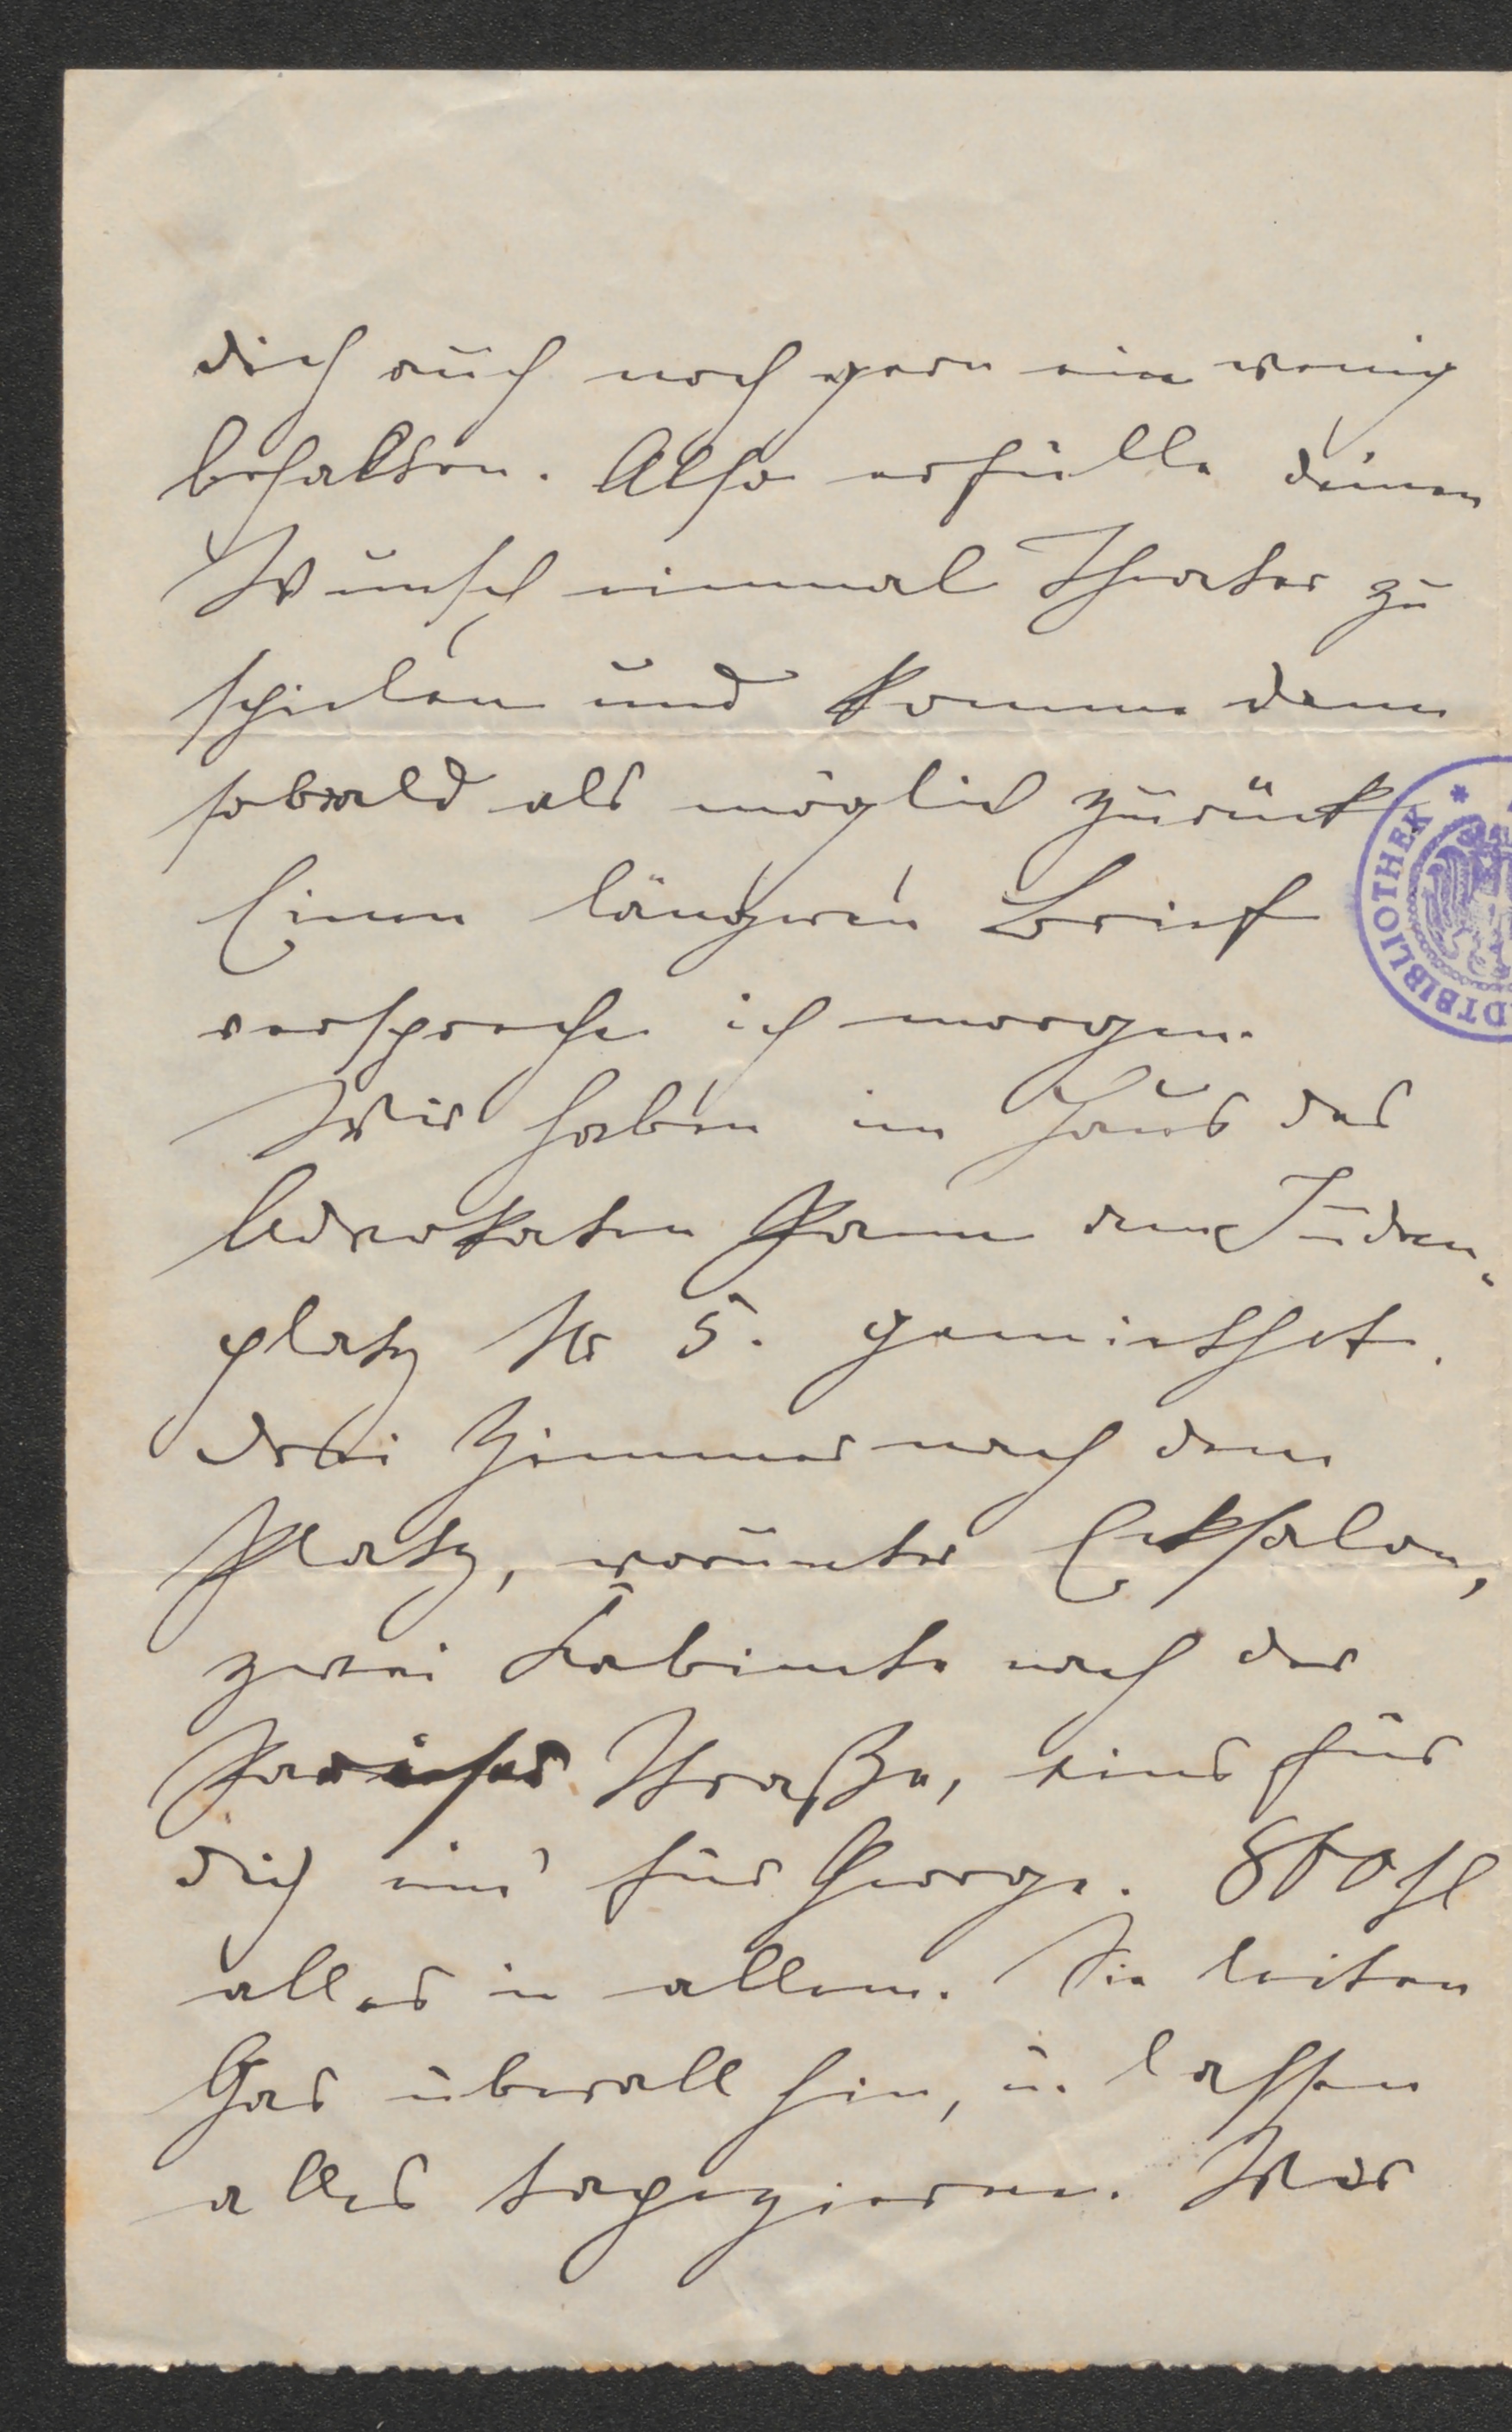 dich auch noch gern ein wenig
behalten. Also erfülle deinen
Wunsch einmal Theater zu
spielen und komme dann
sobald als möglich zurück
Einen längeren Brief
verspreche ich morgen.
Wir haben im Haus des
Advokaten am Juden-
platz Nr 5. gemiethet.
drei Zimmer nach dem
Platz, worunter Ecksalon,
zwei Kabinete nach der
Pariser Straße, eins für
dich eins für George. 800 fl
alles in allem. Sie leiten
Gas überall hin, u. lassen
alles tapezieren. Wir
DTBIBLIOTHEK *